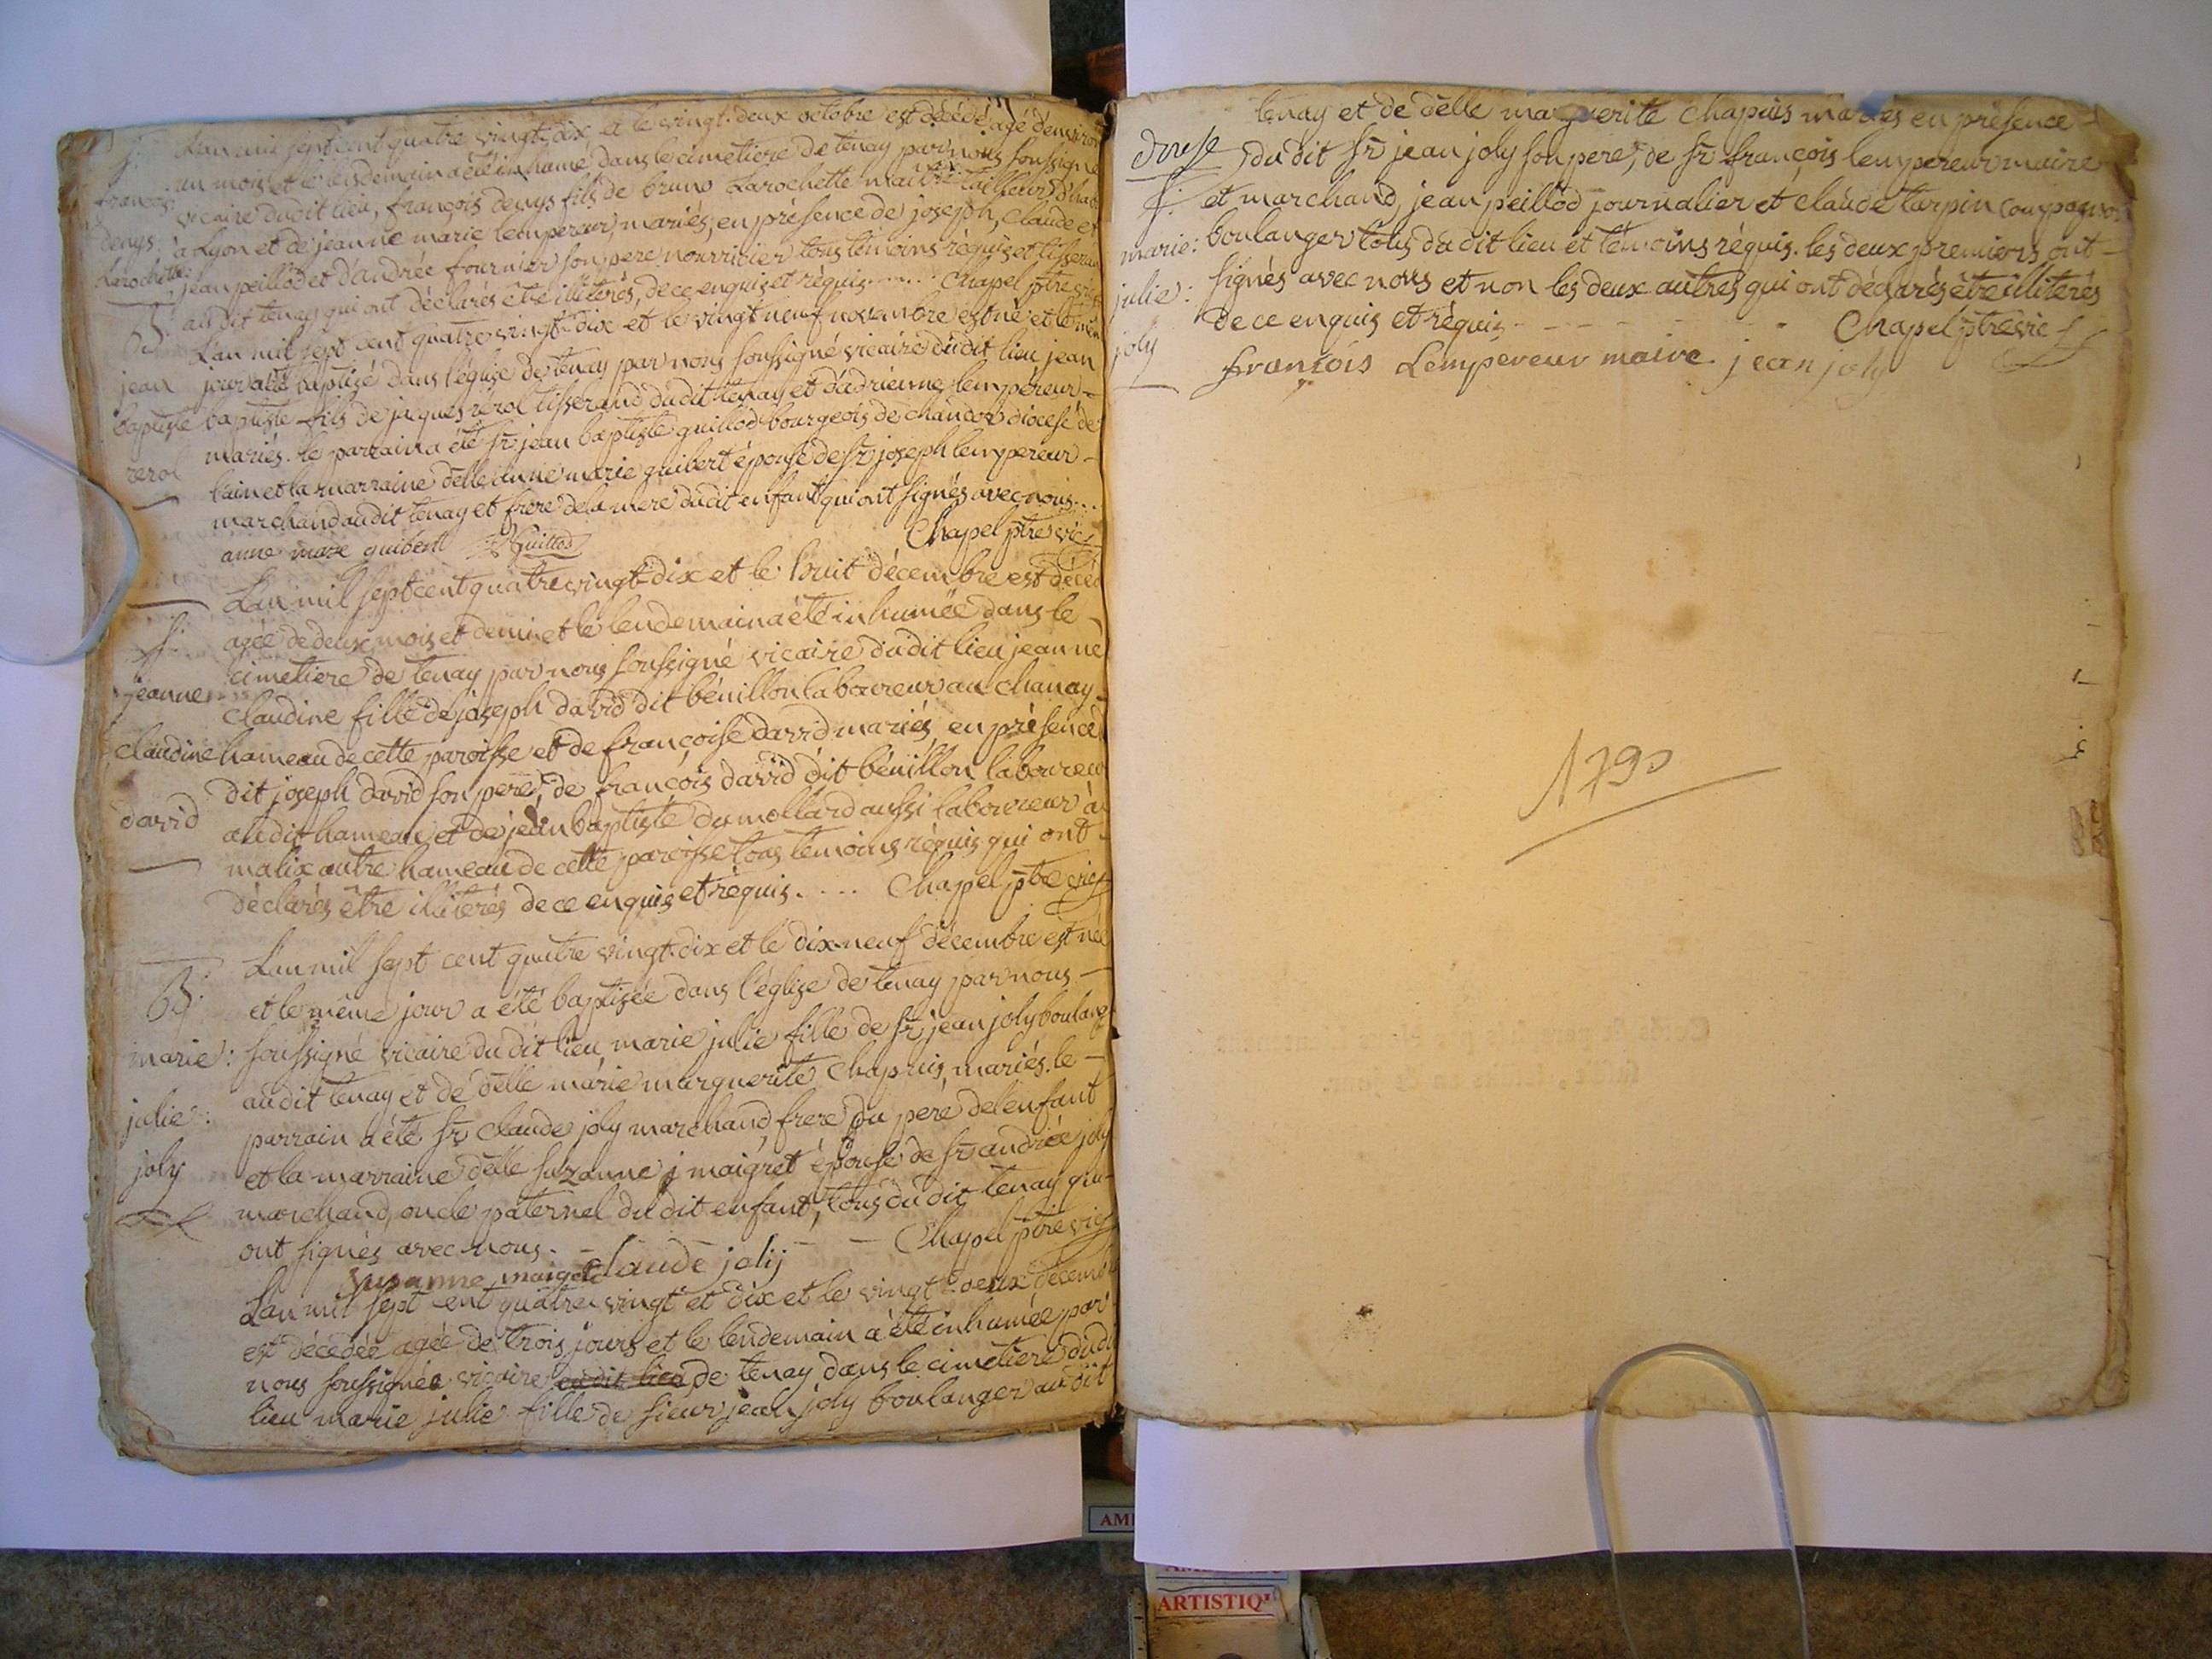 L'an mil sept cent quatre vingt-dix et le vingt-deux octobre est décédé agé denviron
un mois et le lendemain a été inhumé dans le cimetiere de tenay par nous soussigné
vicaire dudit lieu, françois denys fils de bruno Larochette maitre tailleur d'habit
à Lyon et de jeanne marie lempereur, mariés, en présence de joseph, claude et
jean peillod et d'andrée fournier son pere nourricier tous témoins réquis et tisserand
audit tenay qui ont déclarés être illiterés, de ce enquis et réquis...... Chapel ptre vic
f:
françois
denys
Larochette:
L'an mil sept cent quatre vingt-dix et le vingt neuf novembre est né et le même
jour a été baptizé dans l'églize de tenay par nous soussigné vicaire dudit lieu jean
baptiste fils de jacques rérol tisserand dudit tenay et d'adrienne lempéreur
mariés. le parrain a été sr jean baptiste guillod bourgeois de diocese de
l'ain et la marraine delle anne marie guibert épouse de sr joseph lempereur
marchand audit tenay et frere de la mere dudit enfant qui ont signés avec nous...
anne marie guibert Guillod Chapel ptre vic
B:
jean
baptiste
rerol
L'an mil sept cent quatre vingt-dix et le huit décembre est décéd
agée de deux mois et demi et le lendemain a été inhumée dans le
cimetiere de tenay par nous soussigné vicaire dudit lieu jeanne
claudine fille de joseph david dit bénillon laboureur au chanay
hameau de cette paroisse et de françoise david mariés, en présence d
dit joseph david son pere, de françois david dit bénillon laboureur
audit hameau et de jean baptiste dumollard aussi laboureur à
malix autre hameau de cette paroisse tous temoins réquis qui ont
déclarés être illiterés de ce enquis et réquis..... Chapel ptre vic
f:
jeanne
claudine
david
L'an mil sept cent quatre vingt-dix et le dix-neuf décembre est née
et le même jour a été baptizée dans l'églize de tenay par nous
soussigné vicaire dudit lieu marie julie fille de sr jean joly boulang
audit tenay et de delle marie marguerite Chapuis, mariés. le
parrain a été sr claude joly marchand, frere du pere de l'enfant
et la marraine delle suzanne j maigret épouse de sr andrée joly
marchand, oncle paternel dudit enfant, tous dudit tenay qui
ont signés avec nous. Chapel ptre vic
suzanne maigret claude jolij
B:
marie:
julie:
joly
L'an mil sept cent quatre vingt et dix et le vingt-deux décemb
est décédée agée de trois jours et le lendemain a été inhumée par
nous soussignée vicaire du dit lieu de tenay dans le cimetiere dudi
lieu marie julie fille de sieur jean joly boulanger audit
tenay et de delle marguerite Chapuis mariés en présence
dudit sr jean joly son pere, de sr françois lempereur maire
et marchand, jean peillod journalier et claude tarpin compagnon
boulanger tous dudit lieu et témoins réquis. les deux premiers ont
signés avec nous et non les deux autres qui ont déclarés être illiterés
de ce enquis et réquis - - - - - Chapel ptre vic
françois Lempereur maire jean joly
douse
f:
marie:
julie:
joly
1790
ARTISTIQ